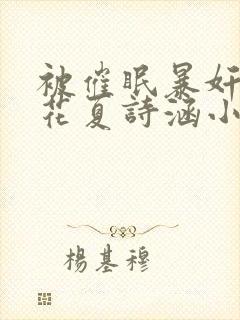 被催眠暴奸
花夏詩涵小
楊基穆